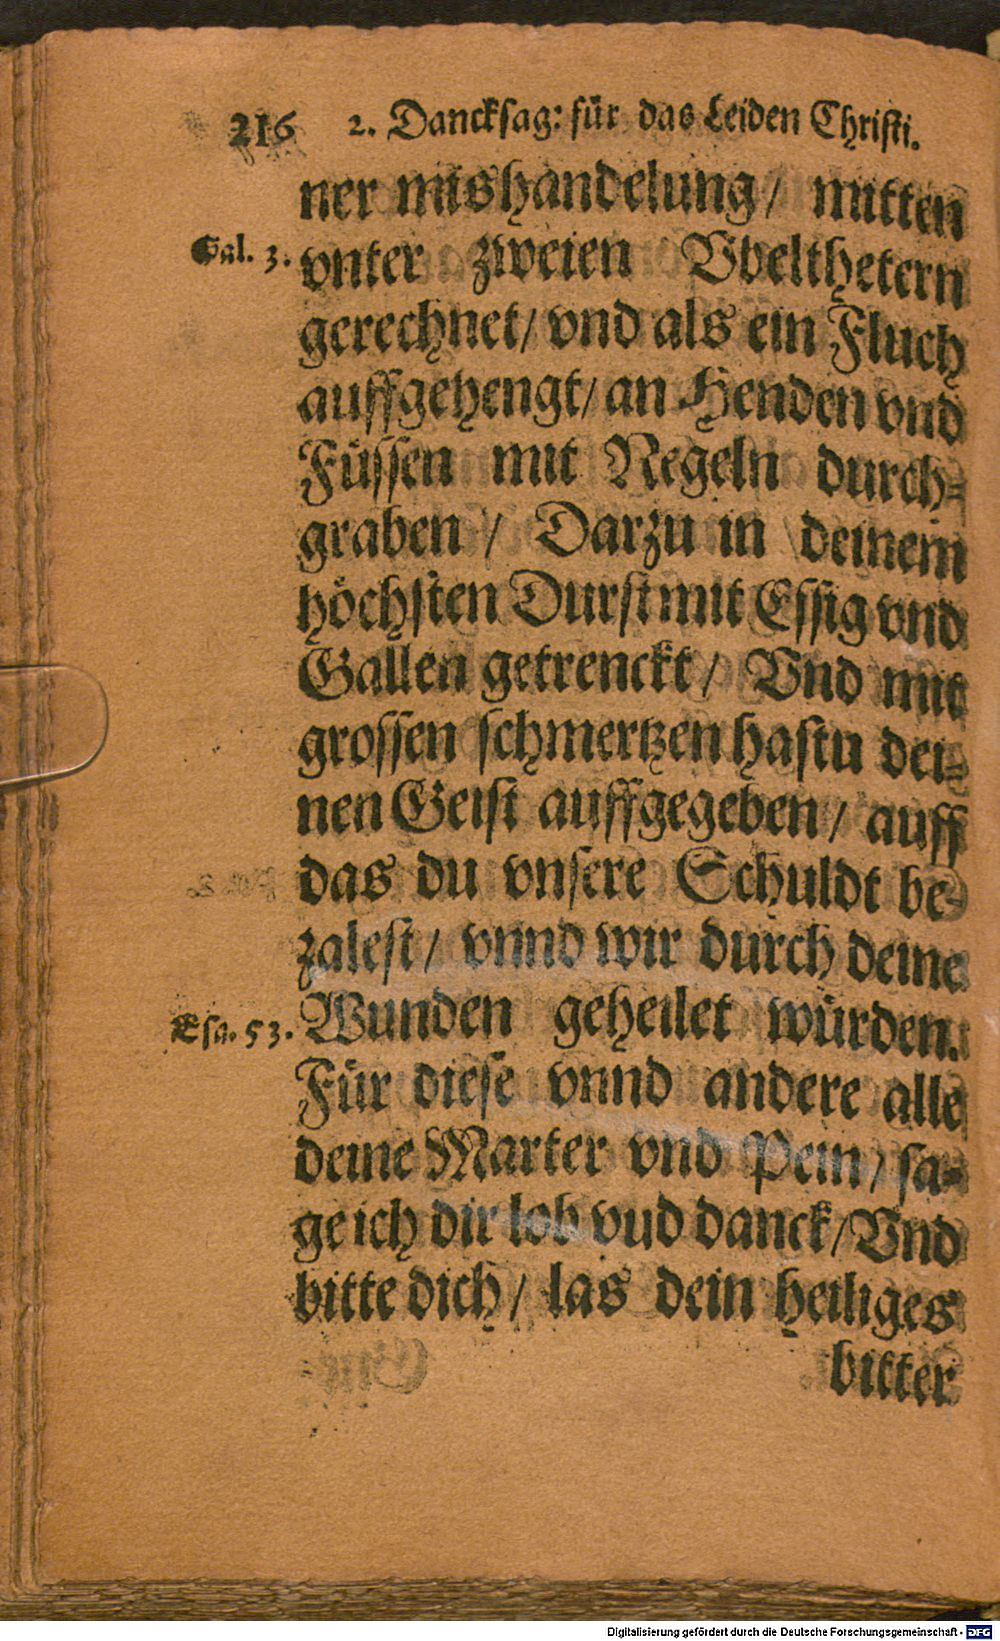 216 2. Dancksag: für das Leiden Christi.
ner mishandelung / mitten
Gal. 3. vnter zweien Vbelthetern
gerechnet / vnd als ein Fluch
auffgehengt / an Henden vnd
Füssen mit Negeln durch=
graben / Darzu in deinem
höchsten Durst mit Essig vnd
Gallen getrenckt / Vnd mit
grossen schmertzen hastu dei=
nen Geist auffgegeben / auff
das du vnsere Schuldt be=
zalest / vnnd wir durch deine
Esa. 53. Wunden geheilet würden.
Für diese vnnd andere alle
deine Marter vnd Pein / sa=
ge ich dir lob vud danck / Vnd
bitte dich / las dein heiliges
bitter
Digitalisierung gefördert durch die Deutsche Forschungsgemeinschaft - DFG